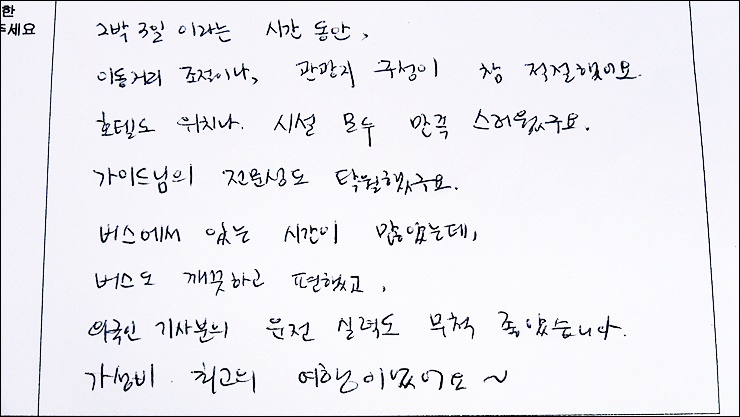 한
주세요
2박 3일 이라는 시간 동안,
이동거리 조절이나, 관광지 구성이 참 적절했어요.
호텔도 위치나 시설 모두 만족 스러웠구요.
가이드님의 전문성도 탁월했구요.
버스에서 있는 시간이 많았는데,
버스도 깨끗하고 편했고,
외국인 기사분의 운전 실력도 무척 좋았습니다.
가성비 최고의 여행이었어요~